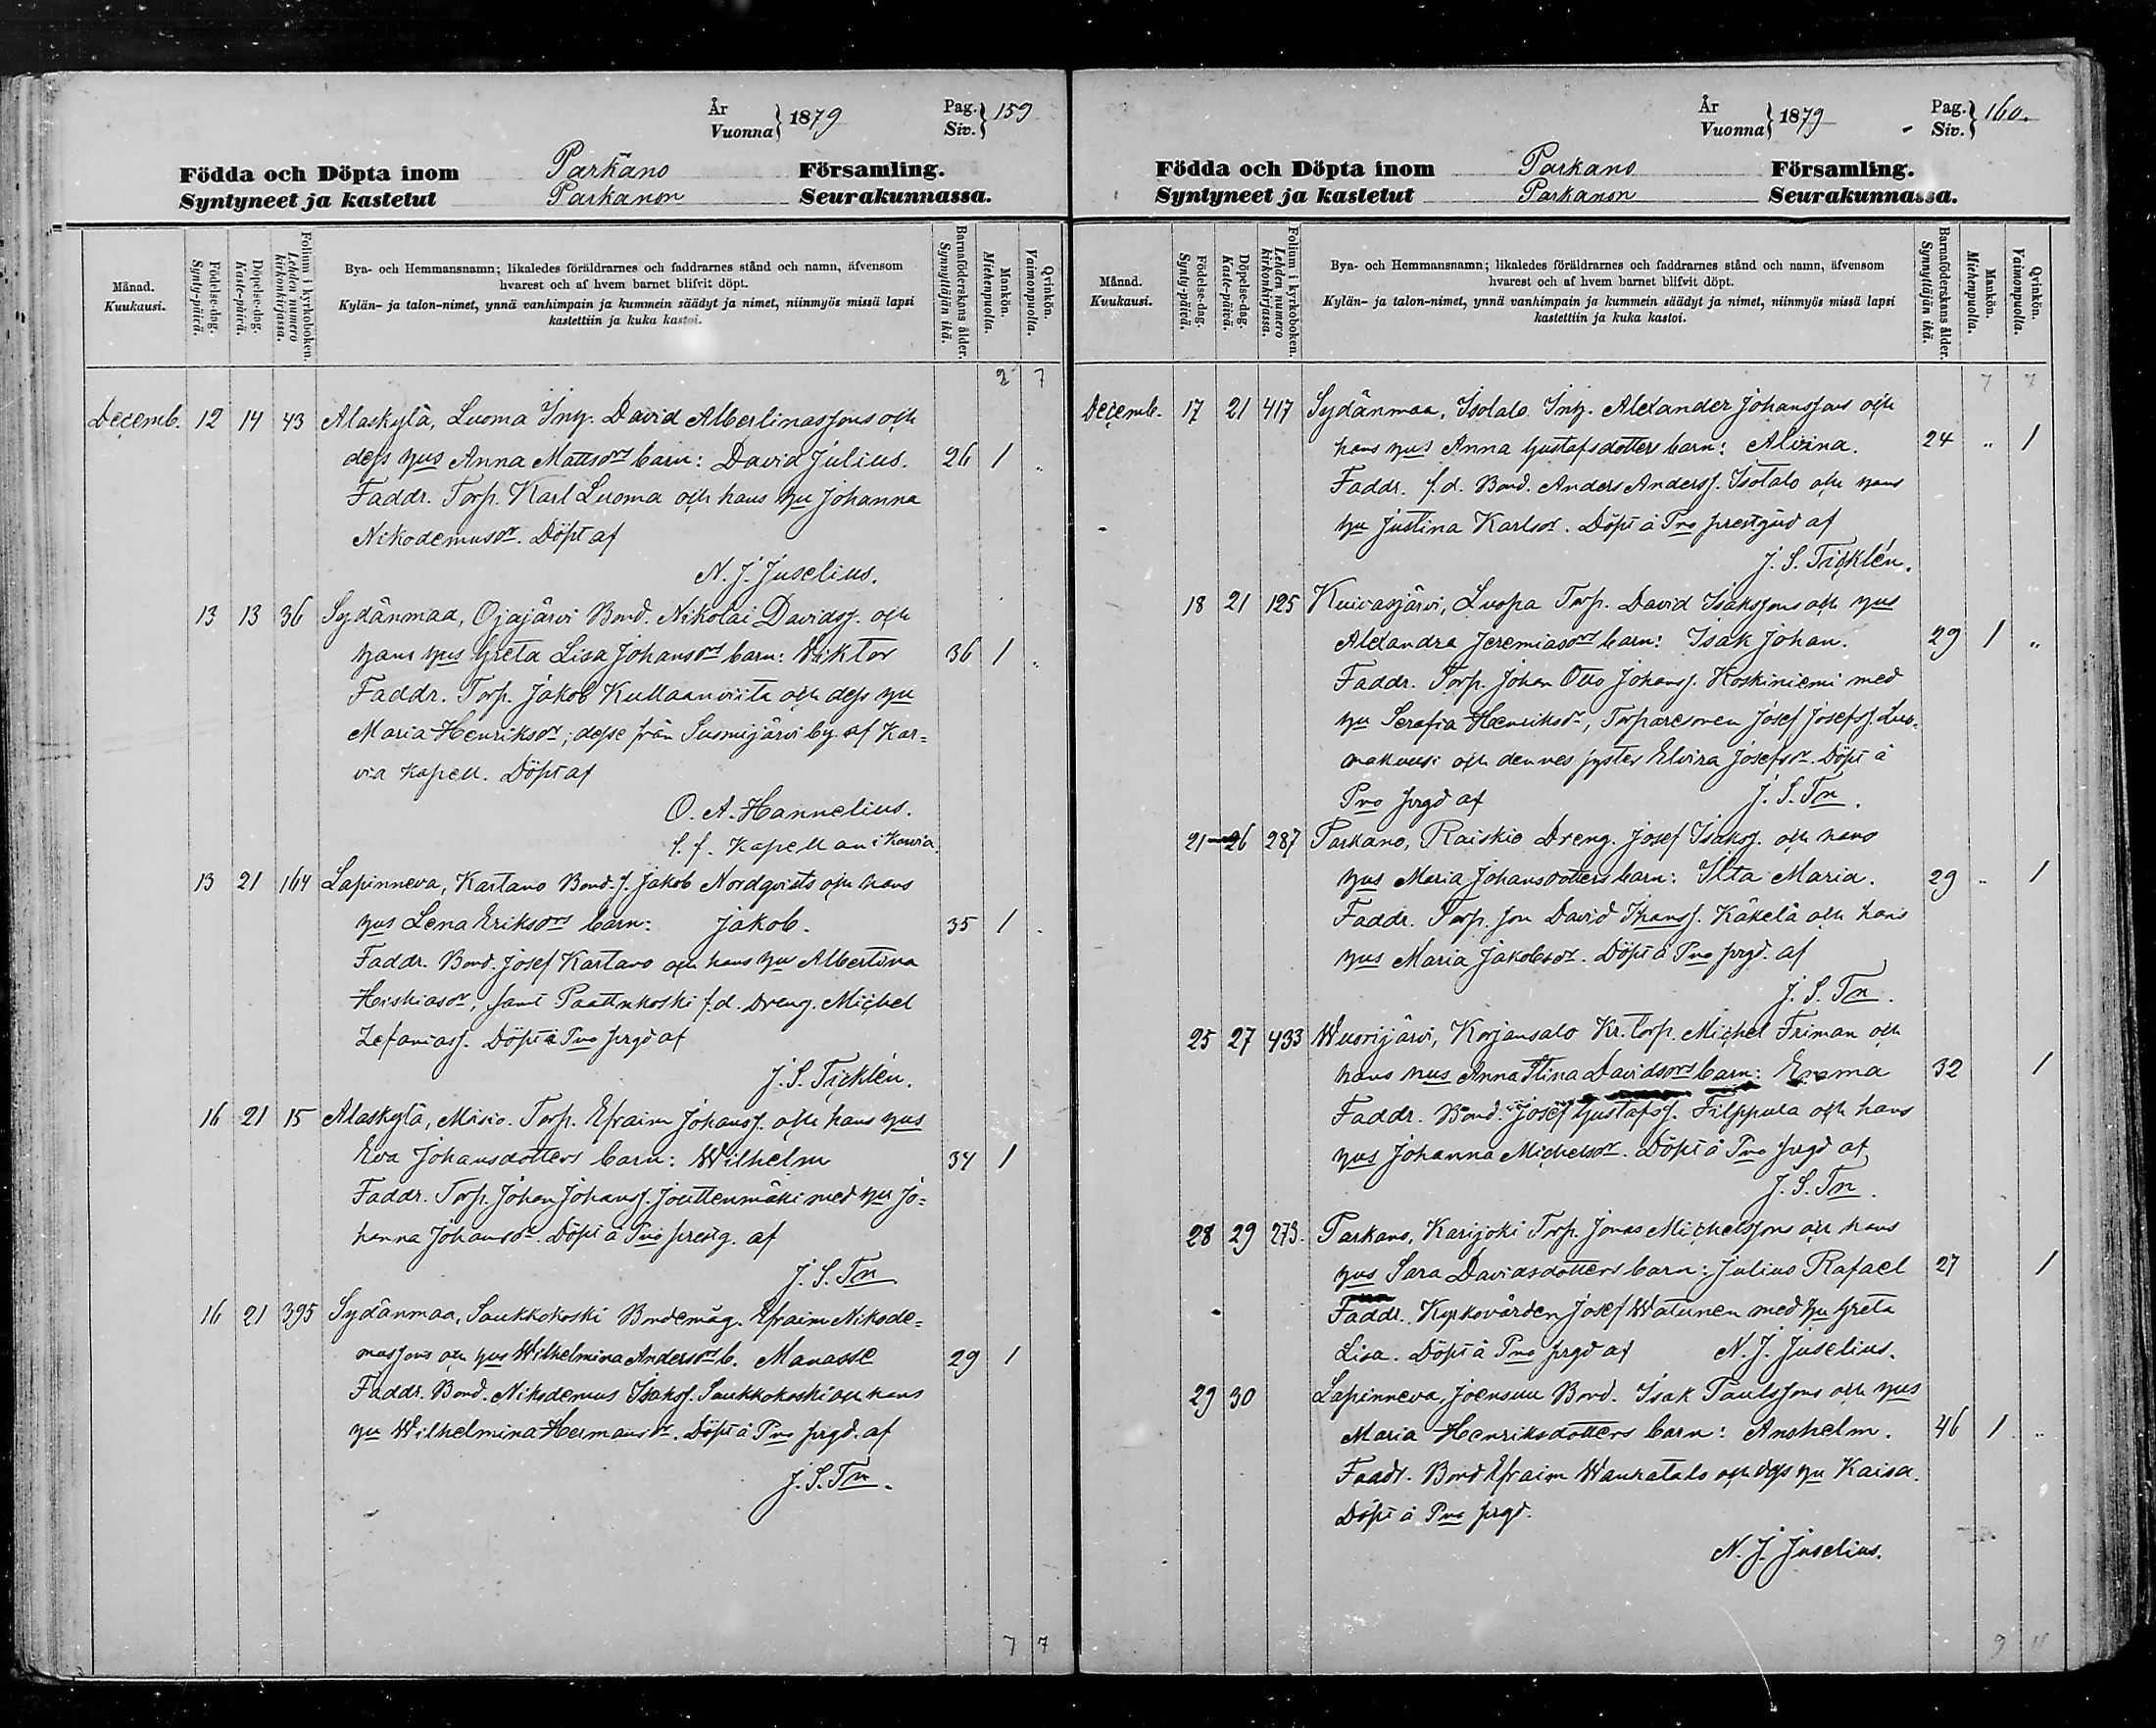 År
Vuonna } 1879
Pag.
Siv. } 159
Födda och Döpta inom Parkano Församling.
Syntyneet ja kastetut Parkanon Seurakunnassa.
Månad.
Kuukausi.
Födelse-dag.
Synty-päivä.
Döpelse-dag.
Kaste-päivä.
Folium i kyrkoboken.
Lehden numero kirkonkirjassa.
Bya- och Hemmansnamn; likaledes föräldrarnes och faddrarnes stånd och namn, äfvensom
hvarest och af hvem barnet blifvit döpt.
Kylän- ja talon-nimet, ynnä vanhimpain ja kummein säädyt ja nimet, niinmyös missä lapsi
kastettiin ja kuka kastoi.
Barnaföderskans ålder.
Synnyttäjän ikä.
Mankön.
Miehenpuolla.
Qvinkön.
Vaimonpuolla.
2 7
Decemb. 12 14 43 Alaskylä, Luoma Inh. David Albertinassons och
dess hus Anna Mattsdrs barn: David Julius. 26 1 "
Faddr. Torp. Karl Luoma och hans hu Johanna
Nikodemusdr. Döpt af
N. J. Juselius.
13 13 36 Sydänmaa, Ojajärvi Bond. Nikolai Davidss. och
hans hus Greta Lisa Johansdrs barn: Viktor 36 1 "
Faddr. Torp. Jakob Kullaanviita och dess hu
Maria Henriksdr, desse från Suomijärvi by af Kar=
via Kapell. Döpt af
O. A. Hannelius.
t. f. Kapellan i Karvia.
13 21 164 Lapinneva, Kartano Bond. s. Jakob Nordqvists och hans
hus Lena Eriksdrs barn: Jakob. 35 1 "
Faddr. Bond. Josef Kartano och hans hu Albertina
Heiskiasdr, samt Paattinkoski f.d. Dreng. Michel
Zefaniass. Döpt å Pno prgd af
J. S. Ticklén.
16 21 15 Alaskylä, Misio. Torp. Efraim Johanss. och hans hus
Eva Johansdotters barn: Wilhelm 34 1
Faddr. Torp. Johan Johanss. Jouttenmäki med hu Jo=
hanna Johansdr. Döpt å Pno prestg. af
J. S. Tn
16 21 395 Sydänmaa, Saukkokoski Bondemåg. Efraim Nikode=
mussons och hus Wilhelmina Andersdrs b. Manasse 29 1
Faddr. Bond. Nikodemus Isakss. Saukkokoski och hans
hu Wilhelmina Hermansdr. Döpt å Pno prgd. af
J. S. Tn.
7 7
År
Vuonna } 1879
Pag.
Siv. } 160.
Födda och Döpta inom Parkano Församling.
Syntyneet ja kastetut Parkanon Seurakunnassa.
Månad.
Kuukausi.
Födelse-dag.
Synty-päivä.
Döpelse-dag.
Kaste-päivä.
Folium i kyrkoboken.
Lehden numero kirkonkirjassa.
Bya- och Hemmansnamn; likaledes föräldrarnes och faddrarnes stånd och namn, äfvensom
hvarest och af hvem barnet blifvit döpt.
Kylän- ja talon-nimet, ynnä vanhimpain ja kummein säädyt ja nimet, niinmyös missä lapsi
kastettiin ja kuka kastoi.
Barnaföderskans ålder.
Synnyttäjän ikä.
Mankön.
Miehenpuolla.
Qvinkön.
Vaimonpuolla.
7 7
Decemb. 17 21 417 Sydänmaa, Isotalo Inh. Alexander Johanssons och
hans hus Anna Gustafsdotters barn: Alviina. 24 " 1
Faddr. f.d. Bond. Anders Anderss. Isotalo och hans
hu Justina Karlsdr. Döpt å Pno prestgård af
J. S. Ticklén.
18 21 125 Kuivasjärvi, Luopa Torp. David Isakssons och hus
Alexandra Jeremiasdrs barn: Isak Johan. 29 1 "
Faddr. Torp. Johan Otto Johanss. Koskiniemi med
hu Serafia Henriksdr, Torparesonen Josef Josefss. Luo=
makuusi och dennes syster Elvira Josefsdr. Döpt å
Pno prgd af J. S. Tn.
21 26 287 Parkano, Raiskio Dreng. Josef Isakss. och hans
hus Maria Johansdotters barn: Ilta Maria. 29 " 1
Faddr. Torp. son David Thomass. Käkelä och hans
hus Maria Jakobsdr. Döpt å Pno prgd. af
J. S. Tn.
25 27 433 Wuorijärvi, Korjansalo Kr. torp. Michel Friman och
hans hus Anna Stina Davidsdrs barn: Emma 32 1
Faddr. Bond. Josef Gustafss. Filppula och hans
hus Johanna Michelsdr. Döpt å Pno prgd af
J. S. Tn.
28 29 273. Parkano, Karijoki Torp. Jonas Michelssons och hans
hus Sara Davidsdotters barn: Julius Rafael 27 1
Faddr. Kyrkovärden Josef Watunen med hu Greta
Lisa. Döpt å Pno prgd af N. J. Juselius.
29 30 Lapinneva, Joensuu Bond. Isak Paulssons och hus
Maria Henriksdotters barn: Anshelm. 46 1 "
Faddr. Bond Efraim Wanhatalo och dess hu Kaisa.
Döpt å Pno prgd.
N. J. Juselius.
9 11